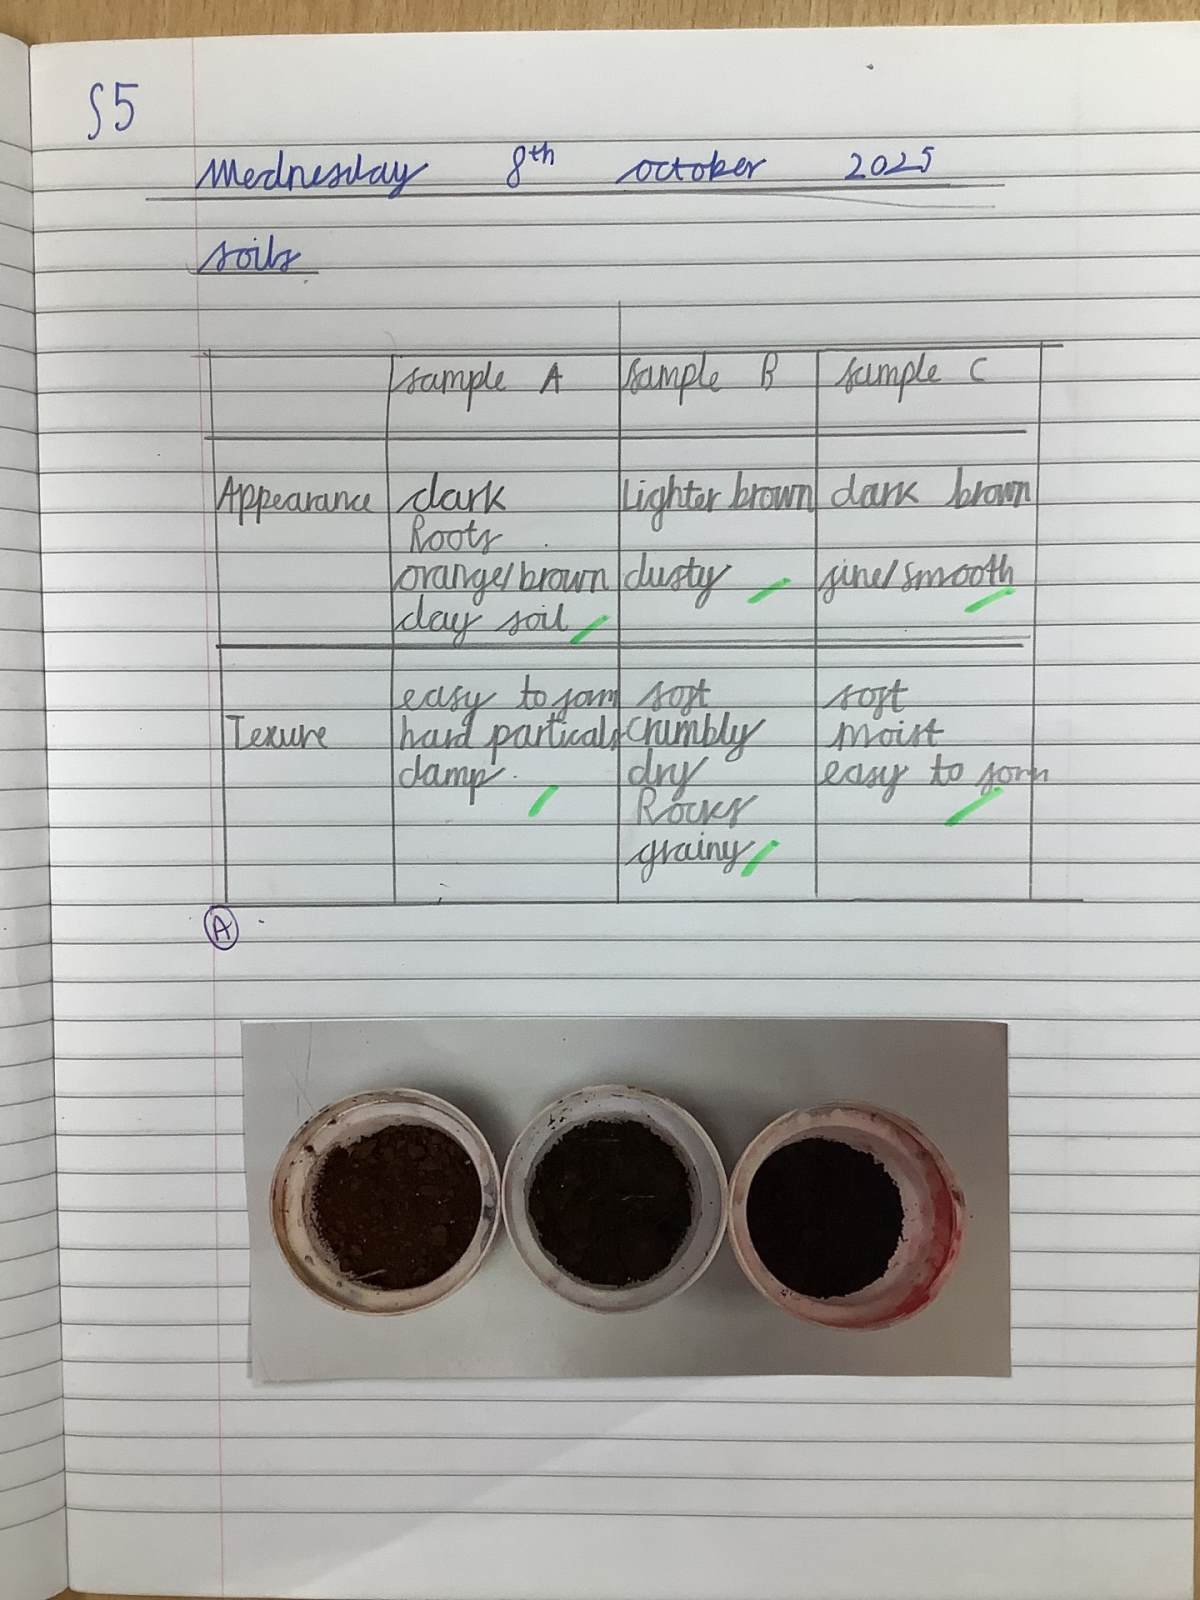 S5
Wednesday 8th october 2025
soils
sample A sample B sample C
Appearance dark Lighter brown dark brown
Roots
orange/brown dusty fine/smooth
clay soil
easy to form soft soft
Texure hard particals crumbly moist
damp. dry easy to form
Rocks
grainy
A